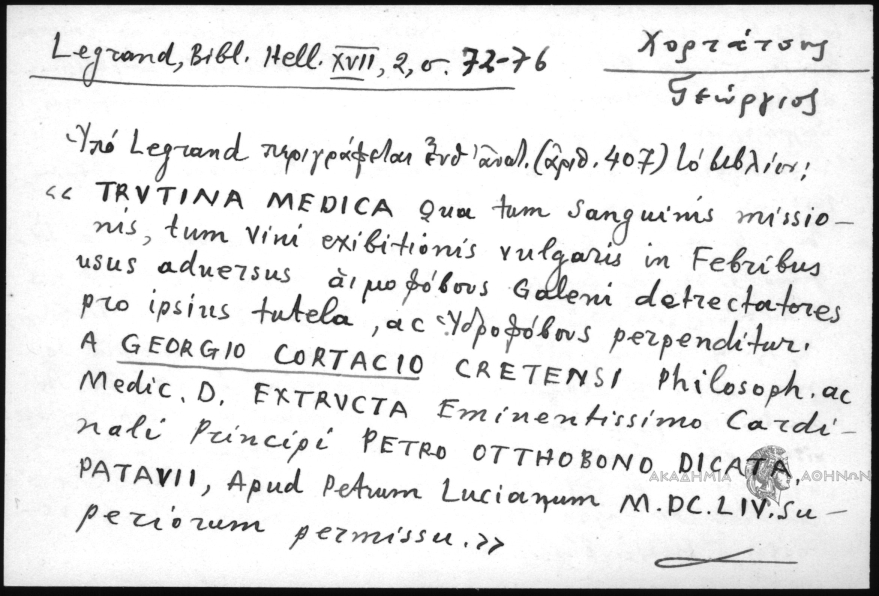 Legrand, Bibl. Hell. XVII, 2, σ. 72-76
Χορτάτσης
Γεώργιος
Ὑπό Legrand περιγράφεται ἐνθ' ἀνωτ. (ἀριθ. 407) τό βιβλίον:
«TRVTINA MEDICA Qua tum Sanguinis missio-
nis, tum Vini exibitionis vulgaris in Febribus
usus aduersus αἱμοφόβους Galeni detrectatores
pro ipsius tutela, ac Ὑδροφόβους perpenditur.
A GEORGIO CORTACIO CRETENSI Philosoph. ac
Medic. D. EXTRVCTA Eminentissimo Cardi-
nali Principi PETRO OTTHOBONO DICATA.
PATAVII, Apud Petrum Lucianum M.DC.LIV. Su-
periorum permissu.»
ΑΚΑΔΗΜΙΑ ΑΘΗΝΩΝ